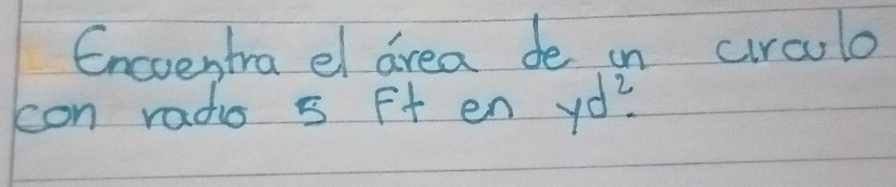 Encuentra el área de un circulo
con radio 5 Ft en yd².